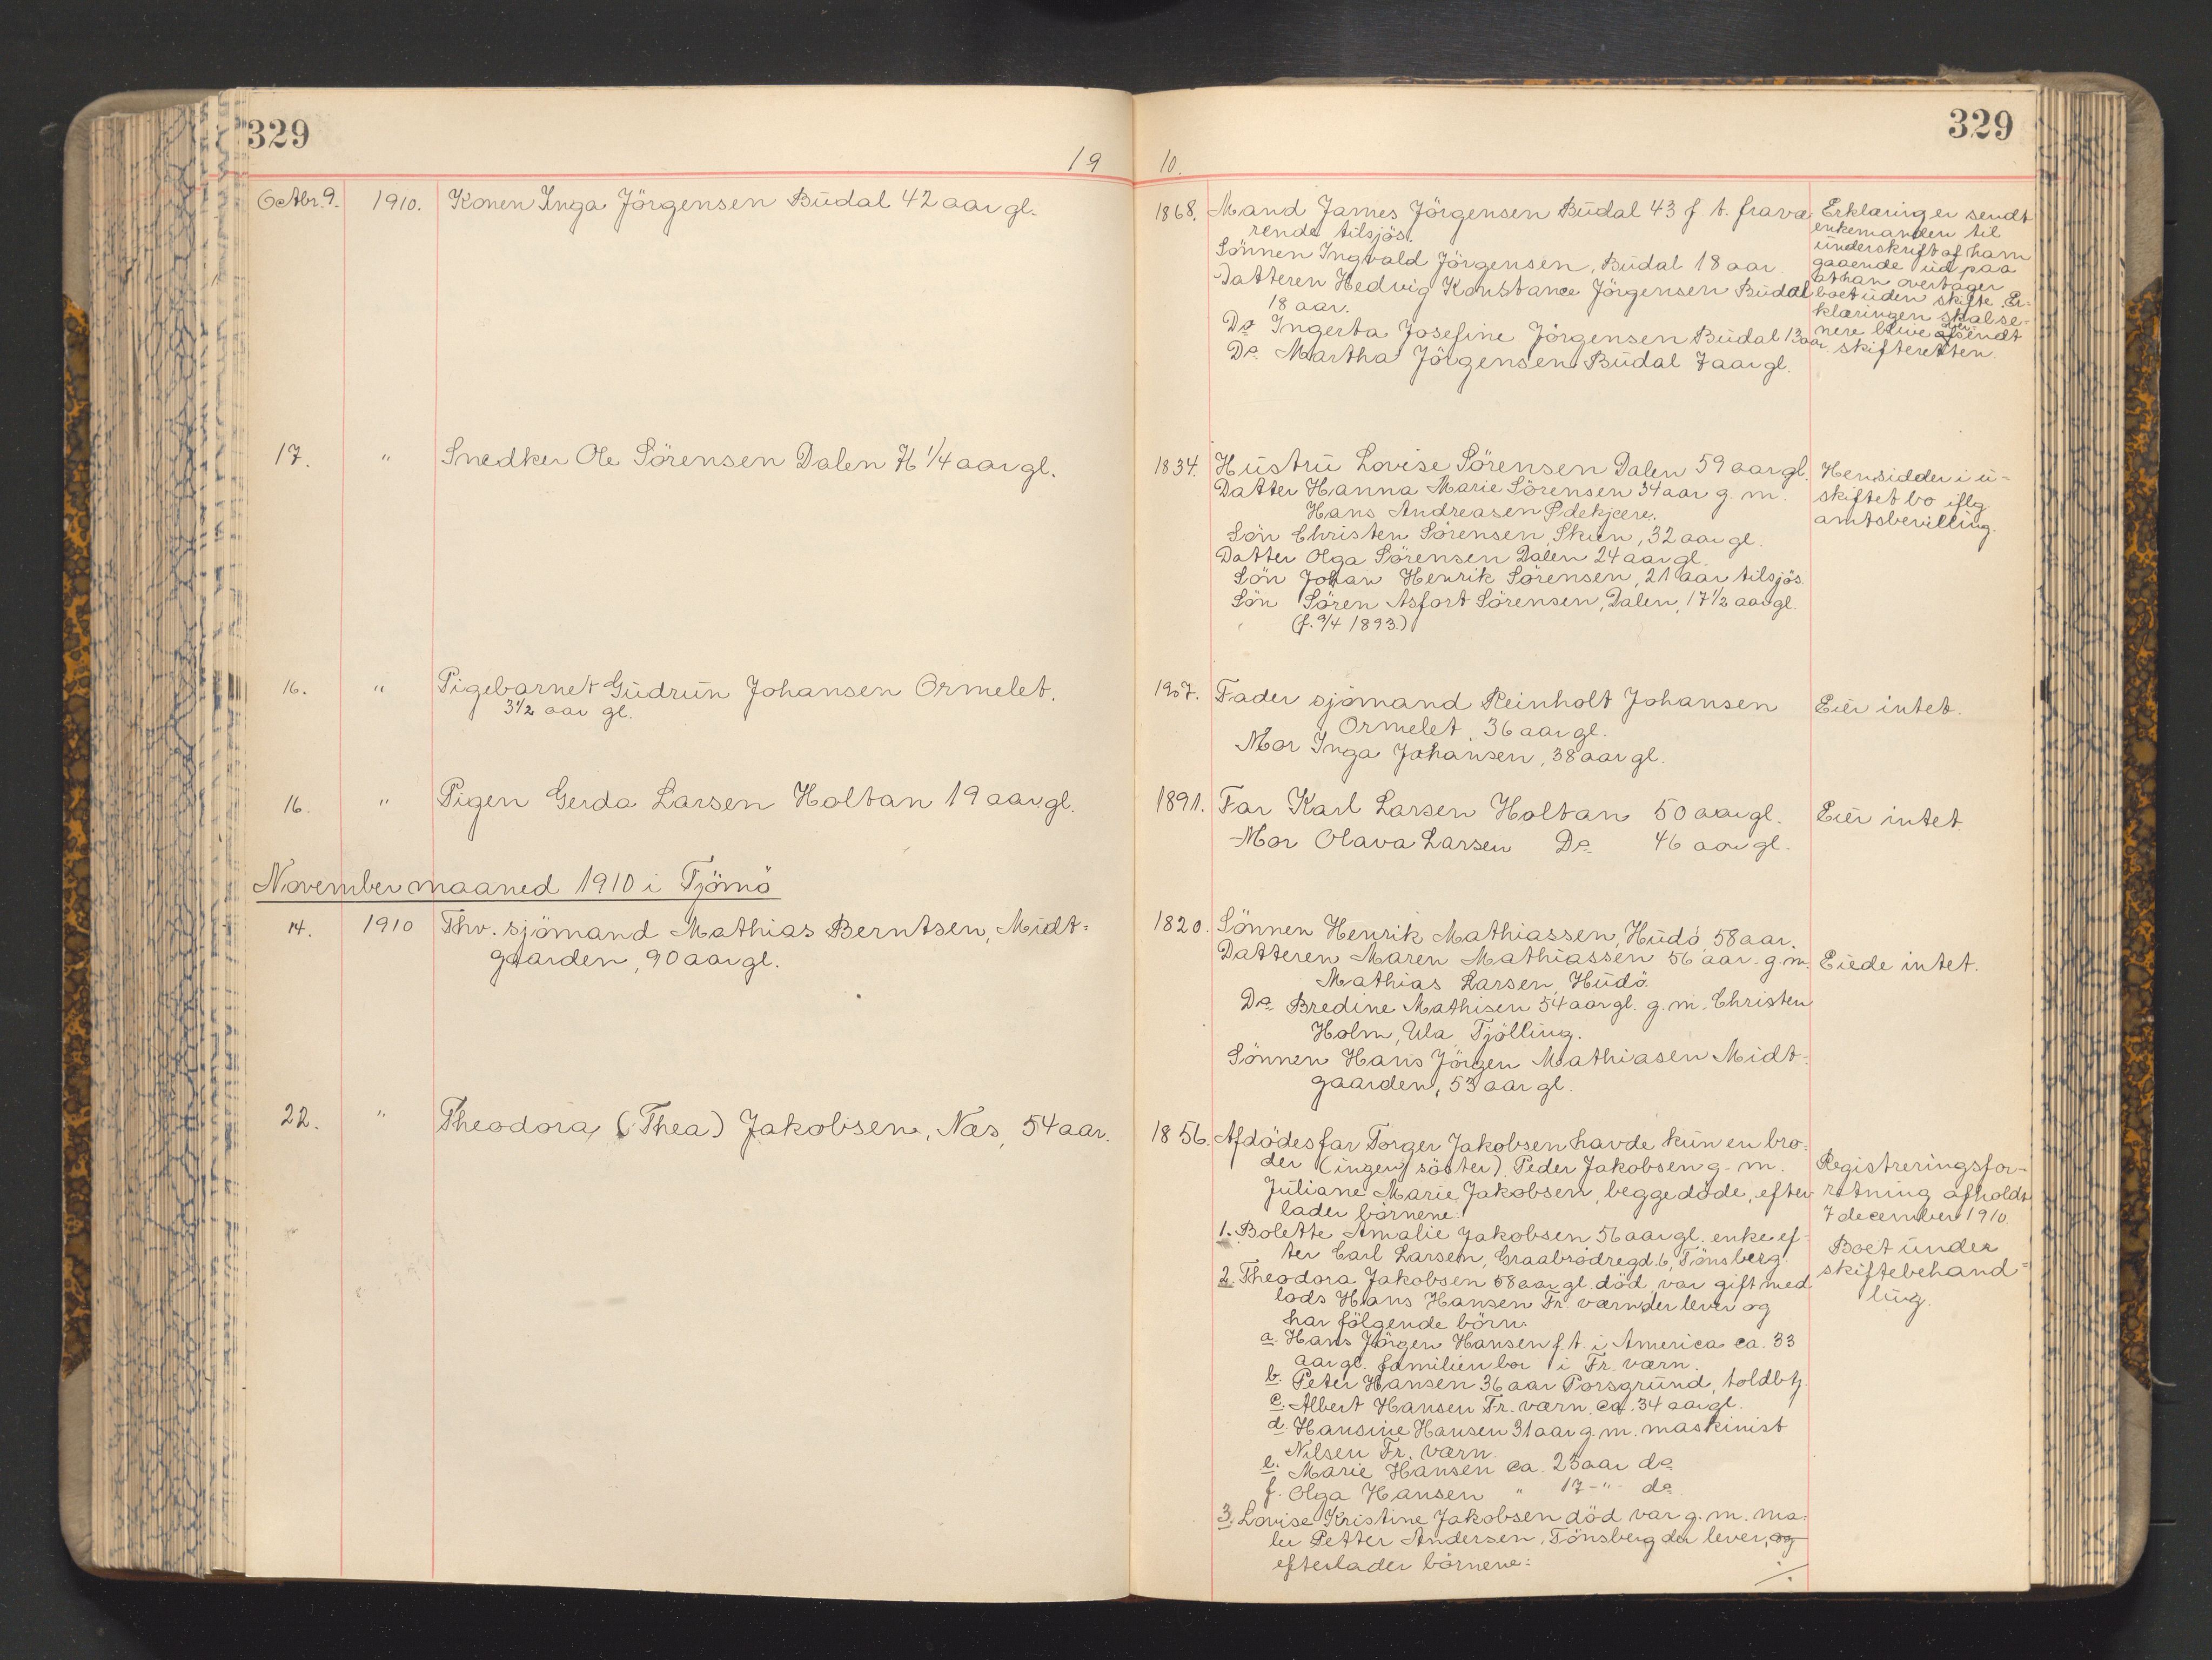 329
19
Octbr. 9. 1910. Konen Inga Jörgensen Budal 42 aar gl.
17. " Snedker Ole Sörensen Dalen 76 1/4 aar gl.
16. " Pigebarnet Gudrun Johansen Ormelet.
3 1/2 aar gl.
16. " Pigen Gerda Larsen Holtan 19 aar gl.
November maaned 1910 i Tjömö
14. 1910 Fhv. sjömand Mathias Berntsen, Midt-
gaarden, 90 aar gl.
22. " Theodora (Thea) Jakobsen, Næs, 54 aar.
329
10.
1868. Mand James Jörgensen Budal 43 f t. fravæ
rende tilsjös.
Sönnen Ingvald Jörgensen, Budal 18 aar.
Datteren Hedvig Konstance Jörgensen Budal
18 aar.
Do Ingerta Josefine Jörgensen Budal 13 aar.
Do Martha Jörgensen Budal 7 aar gl.
Erklæringer sendt
enkemanden til
underskrift af ham
gaaende ud paa
at han overtager
boet uden skifte. Er-
klæringen skal se-
nere blive sendt
skifteretten.
1834. Hustru Lovise Sörensen Dalen 59 aar gl.
Datter Hanna Marie Sörensen 34 aar g. m.
Hans Andreasen
Sön Christen Sörensen, Skien, 32 aar gl.
Datter Olga Sörensen Dalen 24 aar gl.
Sön Johan Henrik Sörensen, 21 aar tilsjös.
Sön Sören Asfort Sörensen, Dalen, 17 1/2 aar gl.
(f. 9/4 1893.)
Hensidder i u-
skiftet bo iflg
amtsbevilling.
1907. Fader sjömand Reinholt Johansen
Ormelet, 36 aar gl.
Mor Inga Johansen, 38 aar gl.
Eier intet.
1891. Far Karl Larsen Holtan 50 aar gl.
Mor Olava Larsen Do 46 aar gl.
Eier intet
1820. Sönnen Henrik Mathiassen, Hudö, 58 aar.
Datteren Maren Mathiassen 56 aar. g. m.
Mathias Larsen, Hudö.
Do Bredine Mathisen 54 aar gl. g. m. Christen
Holm, Ula, Tjölling.
Sönnen Hans Jörgen Mathiasen Midt-
gaarden, 53 aar gl.
Eiede intet.
1856. Afdödes far Torger Jakobsen havde kun en bro-
der (ingen söster) Peder Jakobsen g. m.
Juliane Marie Jakobsen, begge döde, efter
lader börnene:
1. Bolette Amalie Jakobsen 56 aar gl. enke ef-
ter Carl Larsen, Graabrödregd. 6, Tönsberg.
2. Theodora Jakobsen 58 aar gl. död, var gift med
lods Hans Hansen Fr. værn der lever og
har fölgende börn:
a. Hans Jörgen Hansen f. t. i America ca. 33
aar gl. familien bor i Fr. værn.
b. Peter Hansen 36 aar Porsgrund, toldbtj.
c. Albert Hansen Fr. værn, ca. 34 aar gl.
d. Hansine Hansen 31 aar g. m. maskinist
Nilsen Fr. værn.
e. Marie Hansen ca. 25 aar do
f. Olga Hansen " 17 -"- do
3. Lovise Kristine Jakobsen död var g. m. ma-
ler Petter Andersen, Tönsberg der lever, og
efterlader börnene:
./.
Registreringsfor-
retning afholdt
7 december 1910.
Boet under
skiftebehand-
ling.